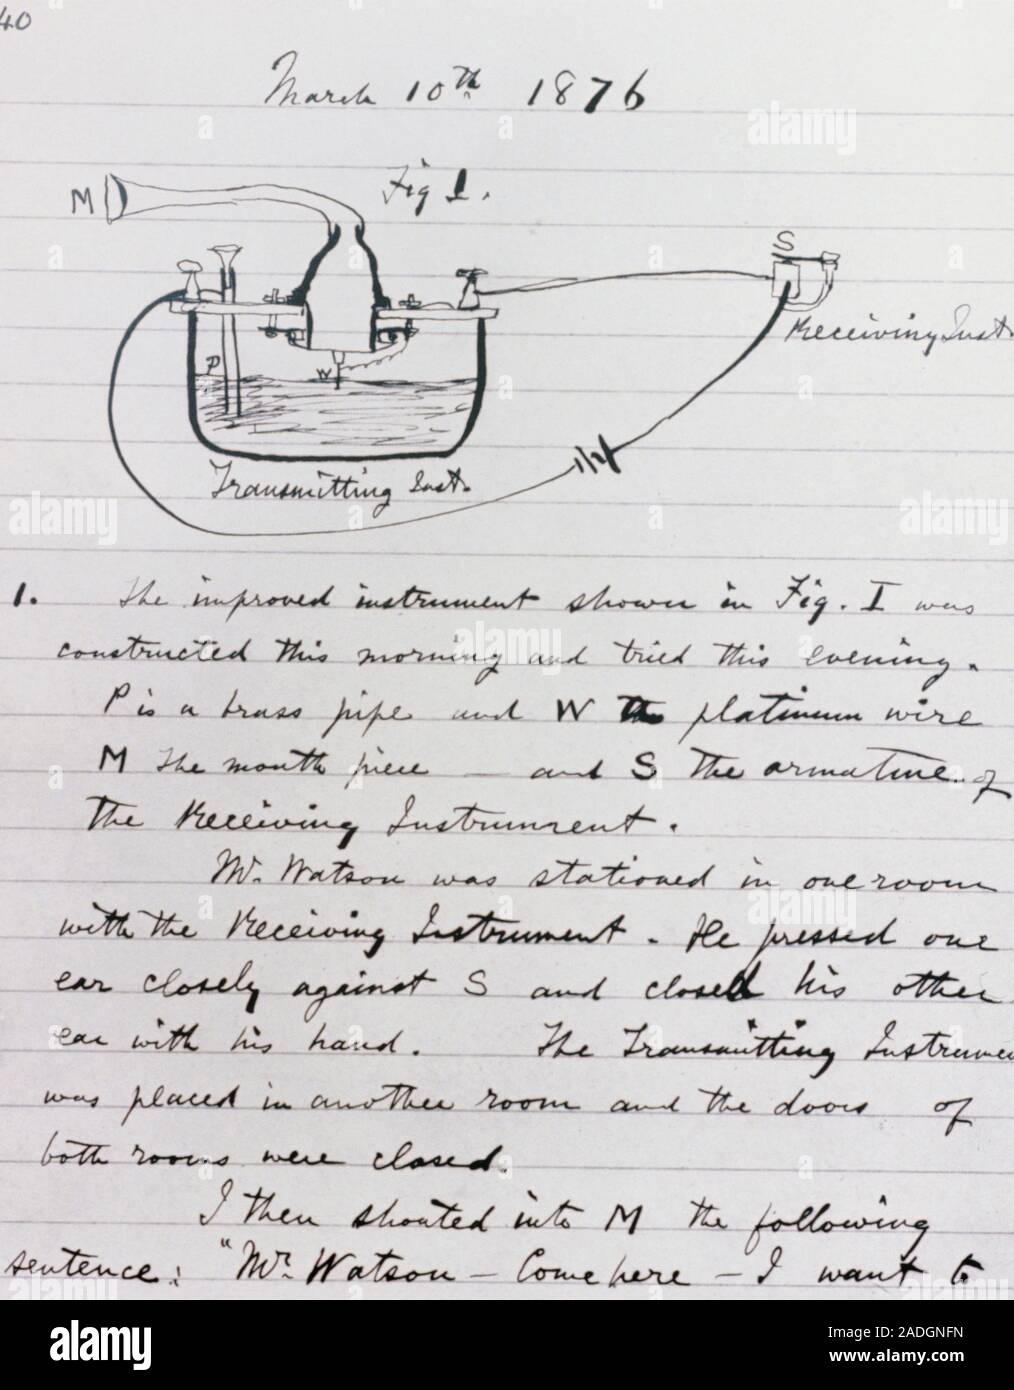 40
March 10th 1876
Fig 1.
M
S
Receiving Inst.
P
W
Transmitting Inst.
1. The improved instrument shown in Fig. I was
constructed this morning and tried this evening.
P is a brass pipe and W the platinum wire
M the mouth piece — and S the armature of
the Receiving Instrument.
Mr. Watson was stationed in one room
with the Receiving Instrument. He pressed one
ear closely against S and closed his other
ear with his hand. The Transmitting Instrumen
was placed in another room and the doors of
both rooms were closed.
I then shouted into M the following
sentence: "Mr. Watson — Come here — I want to
alamy
a
alamy
Image ID: 2ADGNFN
www.alamy.com